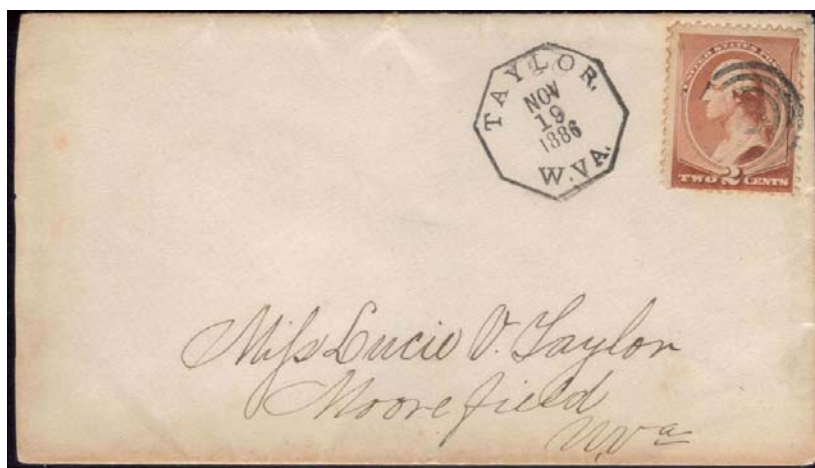 TAYLOR.
NOV
19
1886
W.VA.
UNITED STATES POS
TWO 2 CENTS
Miss Lucie V. Taylor
Moorefield
W,Va